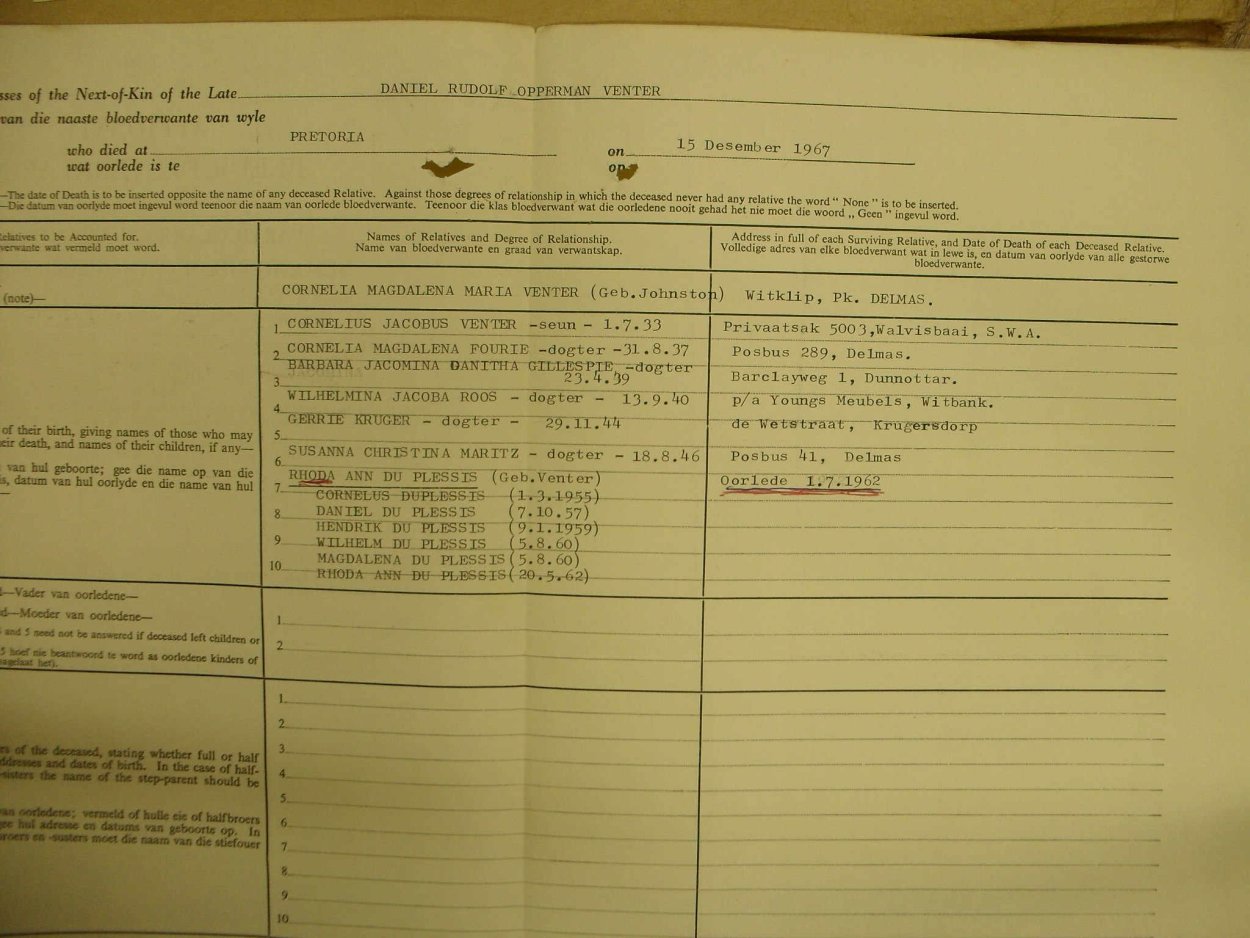 sses of the Next-of-Kin of the Late DANIEL RUDOLF OPPERMAN VENTER
van die naaste bloedverwante van wyle
who died at PRETORIA on 15 Desember 1967
wat oorlede is te op
—The date of Death is to be inserted opposite the name of any deceased Relative. Against those degrees of relationship in which the deceased never had any relative the word " None " is to be inserted.
—Die datum van oorlyde moet ingevul word teenoor die naam van oorlede bloedverwante. Teenoor die klas bloedverwant wat die oorledene nooit gehad het nie moet die woord „ Geen " ingevul word.
elatives to be Accounted for.
verwante wat vermeld moet word.
Names of Relatives and Degree of Relationship.
Name van bloedverwante en graad van verwantskap.
Address in full of each Surviving Relative, and Date of Death of each Deceased Relative.
Volledige adres van elke bloedverwant wat in lewe is, en datum van oorlyde van alle gestorwe
bloedverwante.
(note)—
CORNELIA MAGDALENA MARIA VENTER (Geb.Johnston) Witklip, Pk. DELMAS.
1 CORNELIUS JACOBUS VENTER -seun - 1.7.33 Privaatsak 5003,Walvisbaai, S.W.A.
2 CORNELIA MAGDALENA FOURIE -dogter -31.8.37 Posbus 289, Delmas.
BARBARA JACOMINA DANITHA GILLESPIE -dogter
3 23.4.39 Barclayweg 1, Dunnottar.
WILHELMINA JACOBA ROOS - dogter - 13.9.40 p/a Youngs Meubels, Witbank.
4
GERRIE KRUGER - dogter - 29.11.44 de Wetstraat, Krugersdorp
5
SUSANNA CHRISTINA MARITZ - dogter - 18.8.46 Posbus 41, Delmas
6
RHODA ANN DU PLESSIS (Geb.Venter) Oorlede 1.7.1962
7
CORNELUS DUPLESSIS (1.3.1955)
8 DANIEL DU PLESSIS (7.10.57)
HENDRIK DU PLESSIS (9.1.1959)
9 WILHELM DU PLESSIS (5.8.60)
MAGDALENA DU PLESSIS(5.8.60)
10 RHODA ANN DU PLESSIS(20.5.62)
of their birth, giving names of those who may
eir death, and names of their children, if any—
van hul geboorte; gee die name op van die
s, datum van hul oorlyde en die name van hul
—Vader van oorledene—
d—Moeder van oorledene—
and 5 need not be answered if deceased left children or
5 hoef nie beantwoord te word as oorledene kinders of
nagelaat het).
1
2
rs of the deceased, stating whether full or half
ddresses and dates of birth. In the case of half-
sisters the name of the step-parent should be
van oorledene; vermeld of hulle eie of halfbroers
gee hul adresse en datums van geboorte op. In
broers en -susters moet die naam van die stiefouer
1
2
3
4
5
6
7
8
9
10